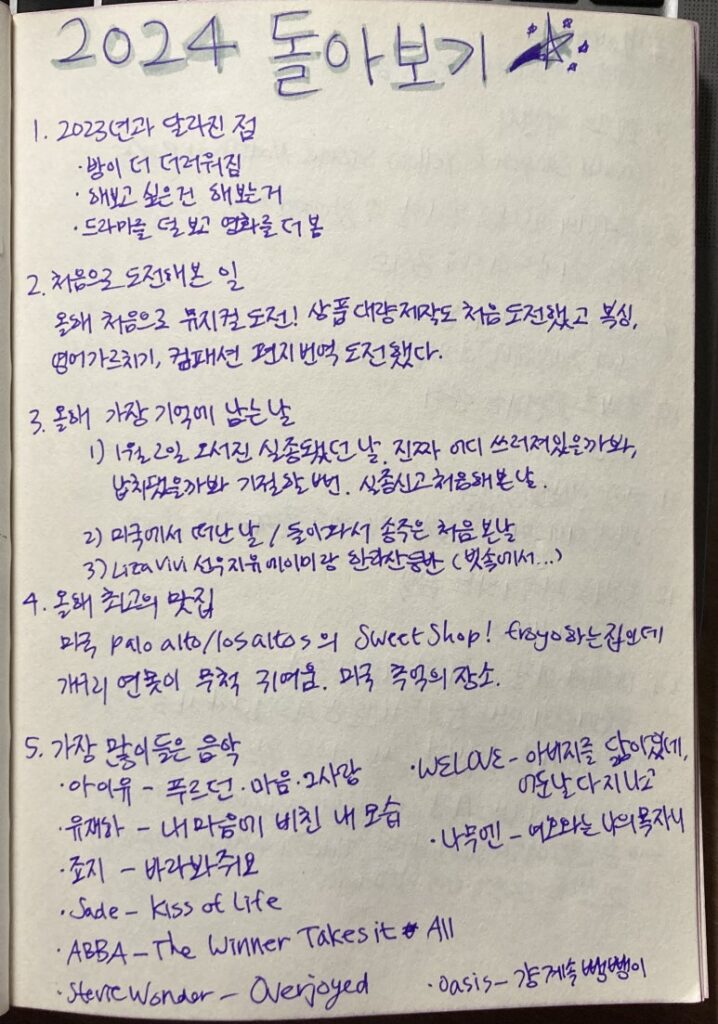 2024 돌아보기
1. 2023년과 달라진 점
· 방이 더 더러워짐
· 해보고 싶은건 해보는거
· 드라마를 덜 보고 영화를 더 봄
2. 처음으로 도전해본 일
올해 처음으로 뮤지컬 도전! 상품 대량제작도 처음 도전했고 복싱,
영어가르치기, 컴패션 편지번역 도전했다.
3. 올해 가장 기억에 남는날
1) 1월 2일 오서진 실종됐던 날. 진짜 어디 쓰러져있을까봐,
납치됐을까봐 기절할 뻔. 실종신고 처음해본날.
2) 미국에서 떠난 날 / 돌아와서 송주은 처음 본날
3) Liza Vivi 선우지유에이미랑 한라산등반 (빗속에서...)
4. 올해 최고의 맛집
미국 palo alto/los altos의 Sweet Shop! froyo하는집인데
개구리 연못이 무척 귀여움. 미국 추억의 장소.
5. 가장 많이들은 음악
· 아이유 - 푸르던 · 마음 · 그사람
· 유재하 - 내 마음에 비친 내 모습
· 죠지 - 바라봐줘요
· Sade - Kiss of Life
· ABBA - The Winner Takes it All
· Stevie Wonder - Overjoyed
· WELOVE - 아버지를 닮아졌네,
어둔날 다 지나고
· 나무엔 - 여호와는 나의 목자시
· Oasis - 걍 계속 뺑뺑이